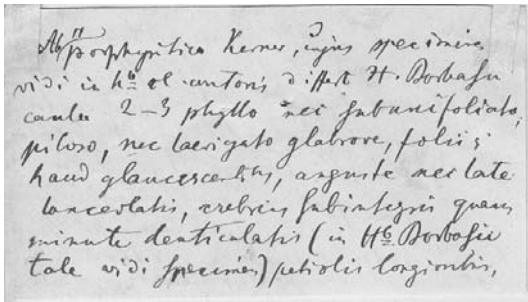 Ab H. porphyritica Kerner, cujus specimina
vidi in hb. cl. autoris differt H. Borbasii
caule 2–3 phyllo nec subunifoliato,
piloso, nec laevigato glabrove, foliis
haud glaucescentibus, anguste nec late
lanceolatis, crebrius subintegris quam
minute denticulatis (in Hb. Borbasii
tale vidi specimen) petiolis longioribus,